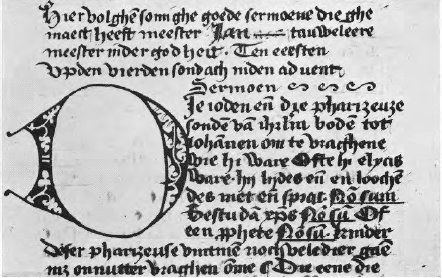 Hier volghẽ som̃ghe goede sermoenẽ die ghe
maect heeft meester Jan tauweleere
meester inder godheit. Ten eersten
Vpden vierden sondach inden aduent.
Sermoen
Die ioden eñ die pharizeuze
sondẽ vã ihrlm bodẽ tot
Iohannẽ om te vraghene
wie hi ware Ofte hi elyas
ware. hij lydes eñ loochẽ
des niet eñ sprac Nõ sum
Bestu dã xp̃s Nõ sũ Of
een p̃phete Nõ sũ
Deser pharizeuse vintmẽ noch vele die gaẽ
onnutter vraghen õme Die eene die